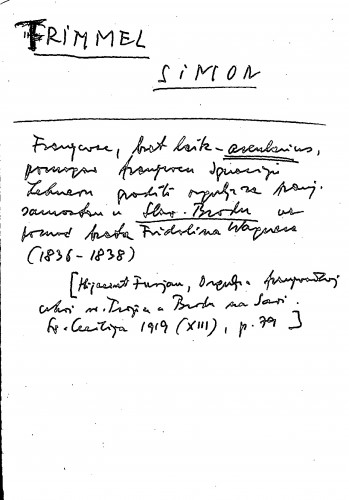 TRIMMEL
SIMON
Franjevac, brat laik - arcularius,
pomogao franjevcu Ignaciju
Lehneru graditi orgulje za franj.
samostan u Slav. Brodu uz
pomoć brata Fridolina Wagnera
(1836-1838)
[Hijacint Furjan, Orgulje franjevačkoj
crkvi sv. Trojice u Brodu na Savi.
Sv. Cecilija 1919 (XIII), p. 79]